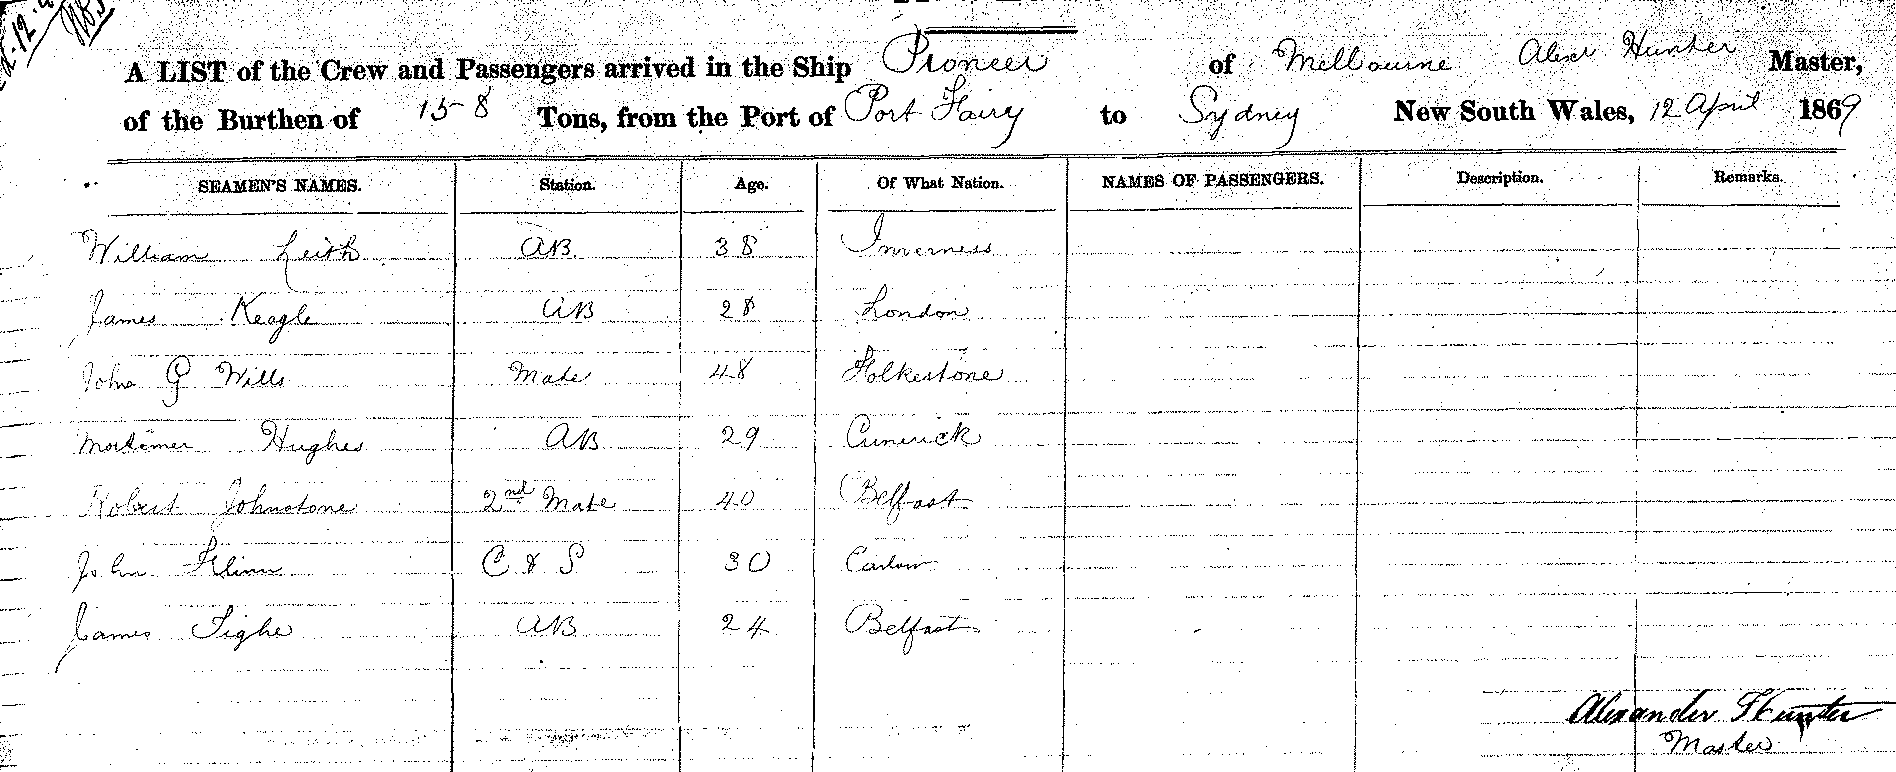 A LIST of the Crew and Passengers arrived in the Ship Pioneer of Melbourne Alexr Hunter Master,
of the Burthen of 158 Tons, from the Port of Port Fairy to Sydney New South Wales, 12 April 1869
SEAMEN'S NAMES. Station. Age. Of What Nation. NAMES OF PASSENGERS. Description. Remarks.
William Leith AB 38 Inverness
James Keagle AB 28 London
John G Wills Mate 48 Folkestone
Mortimer Hughes AB 29 
Robert Johnstone 2nd Mate 40 Belfast
John Flinn C & S 30 Carlow
James Tighe AB 24 Belfast
Alexander Hunter
Master